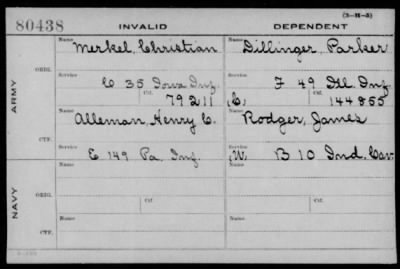 (3-11-5)
80438 INVALID DEPENDENT
Name Merkel, Christian Name Dillinger, Parker
ORIG. Service C 35 Iowa Inf. Service F 49 Ill. Inf.
Ctf. 79211 (C) Ctf. 144855
ARMY
Name Alleman, Henry C. Name Rodger, James
CTF. Service E 149 Pa. Inf. Service (W) B 10 Ind. Cav.
Name Name
ORIG. Ctf. Ctf.
NAVY
Name Name
CTF.